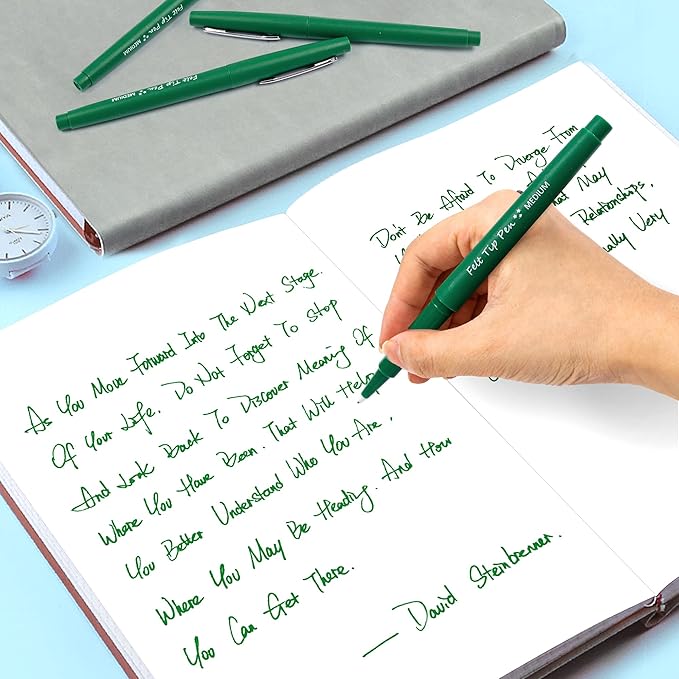 Felt Tip Pen MEDIUM
Felt Tip Pen MEDIUM
Felt Tip Pen MEDIUM
As You Move Forward Into The Next Stage.
Of Your Life. Do Not Forget To Stop
And Look Back To Discover Meaning Of
Where You Have Been. That Will Help
You Better Understand Who You Are,
Where You May Be Heading. And How
You Can Get There.
— David Steinbrenner.
Don't Be Afraid To Diverge From
May
Relationships,
Very